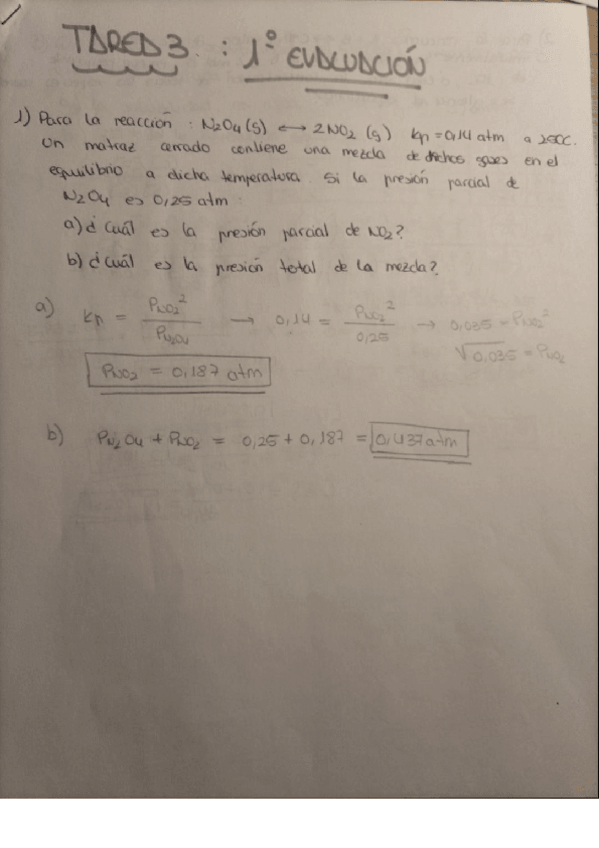 TAREA 3 : 1º EVALUACIÓN
1) Para la reacción : N₂O₄ (g) ⟷ 2NO₂ (g) Kp = 0,14 atm a 25ºC.
Un matraz cerrado contiene una mezcla de dichos gases en el
equilibrio a dicha temperatura. Si la presión parcial de
N₂O₄ es 0,25 atm :
a) ¿Cuál es la presión parcial de NO₂?
b) ¿Cuál es la presión total de la mezcla?
a) Kp = P_NO₂² / P_N₂O₄ → 0,14 = P_NO₂² / 0,25 → 0,035 = P_NO₂²
√0,035 = P_NO₂
P_NO₂ = 0,187 atm
b) P_N₂O₄ + P_NO₂ = 0,25 + 0,187 = 0,437 atm